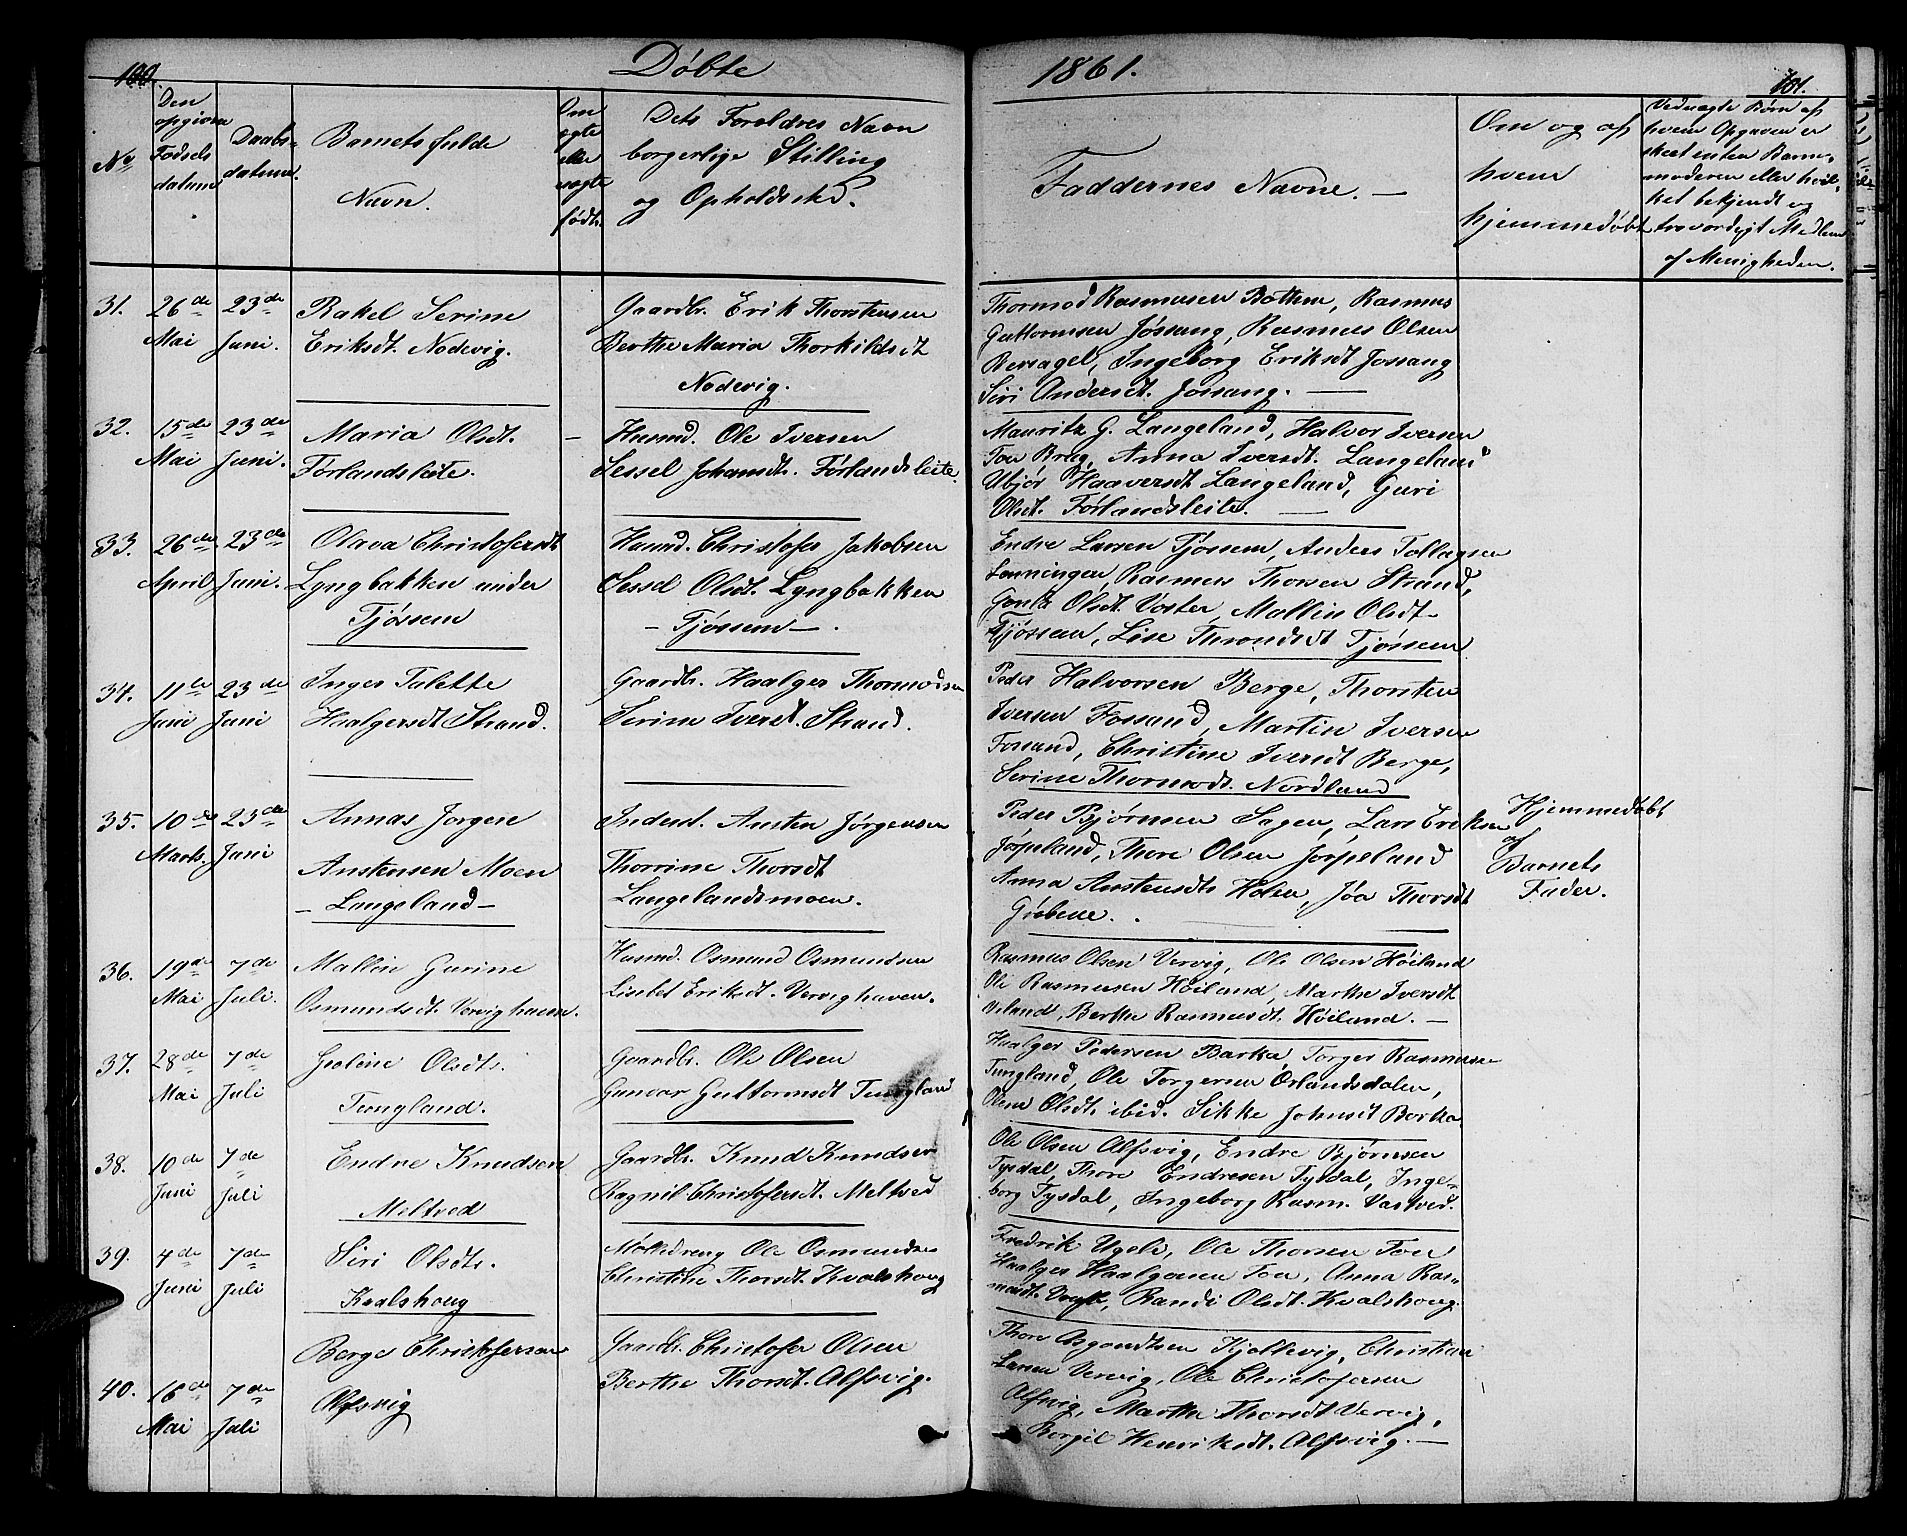 100.
Døbte
1861.
101.
No
Den opgivne Fødsels datum
Daabs-datum.
Barnets fulde Navn.
Om ægte eller uægte født.
Dets Forældres Navn borgerlige Stilling og Opholdssted.
Faddernes Navne. —
Om og af hvem hjemmedøbt
Veduægte Børn af hvem Opgaven er skeet enten Barnemoderen eller hvilket bekjendt og troværdigt Medlem af Menigheden.
31. 26de Mai 23de Juni.
Rakel Serine
Eriksdt. Nodevig.
Gaardbr. Erik Thorstensen
Berthe Maria Thorkildsdt
Nodevig.
Thormod Rasmusen Bottem, Rasmus
Guttormsen Jøssang, Rasmus Olsen
Bersagel, Ingeborg Eriksdt Jossang
Siri Andersdt. Jossang. —
32. 15de Mai 23de Juni.
Maria Olsdt.
Førlandsleite.
—
Husmd. Ole Iversen
Sessel Johansdt. Førlandsleite.
Mauritz G. Langeland, Halvor Iversen
Tou Brug, Anna Iversdt. Langeland
Ubjør Haaversdt Langeland, Guri
Olsdt. Førlandsleite. —
33. 26de April 23de Juni.
Olava Christofersdt
Lyngbakken under
Tjøssem
Husmd. Christofer Jakobsen
Sessel Olsdt. Lyngbakken
— Tjøssem —.
Endre Larsen Tjøssem, Anders Tollagsen
Lønningen, Rasmus Thorsen Strand,
Olsdt. Voster, Mallin Olsdt
Tjøssem, Lise Throndsdt Tjøssem
34. 11te Juni 23de Juni
Inger Talette
Haalgersdt Strand.
Gaardbr. Haalger Thormodsen
Serine Iversdt. Strand.
Peder Halvorsen Berge, Thorsten
Iversen Fossand, Martin Iversen
Fossand, Christine Iversdt Berge,
Serine Thormodsdt. Nordland
35. 10de Marts. 23de Juni
Annas Jorgen
Austensen Moen
— Langeland —
Inderst. Austen Jørgensen
Thorrine Thorsdt
Langelandsmoen.
Peder Bjørnsen Sagen, Lars Eriksen
Jørpeland, Thore Olsen Jørpeland
Anna Austensdt. Holen, Jøa Thorsdt
Grøbene.
Hjemmedøbt
af
Barnets
Fader.
36. 19de Mai 7de Juli.
Mallin Gurine
Osmundsdt. Vervighavn.
Husmd. Osmund Osmundsen
Lisebet Eriksdt. Vervighaven.
Rasmus Olsen Vervig, Ole Olsen Høiland
Ole Rasmusen Høiland, Marthe Iversdt
Veland, Berthe Rasmusdt. Høiland. —
37. 28de Mai 7de Juli
Goline Olsdt.
Tungland.
Gaardbr. Ole Olsen
Gunvor Guttormsdt Tungland
Haalger Pedersen Barka Torger Rasmusen
Tungland, Ole Torgersen Ørlandsdalen,
Olene Olsdt. ibid. Sikke Johnsdt Borka
38. 10de Juni 7de Juli
Endre Knudsen
Meltved
Gaardbr. Knud Knudsen
Ragnil Christofersdt. Meltved
Ole Olsen Alfsvig, Endre Bjørnsen
Tysdal, Thore Endresen Tysdal, Inge-
borg Tysdal, Ingeborg Rasm. Vastved.
39. 4de Juni 7de Juli
Siri Olsdt.
Kvalshoug
Ole Osmundsen
Christine Thorsdt. Kvalshoug
Fredrik Ugels, Ole Thorsen Tou
Haalger Haalgersen Tou, Anna Ras-
musdt. Randi Olsdt. Kvalshoug.
40. 16de Mai 7de Juli
Berge Christofersen
Alfsvig
Gaardbr. Christofer Olsen
Berthe Thorsdt. Alfsvig.
Thore Asgoudtsen Kjollevig, Christian
Larsen Vervig, Ole Christofersen
Alfsvig, Marthe Thorsdt Vervig,
Borgil Henriksdt. Alfsvig. —